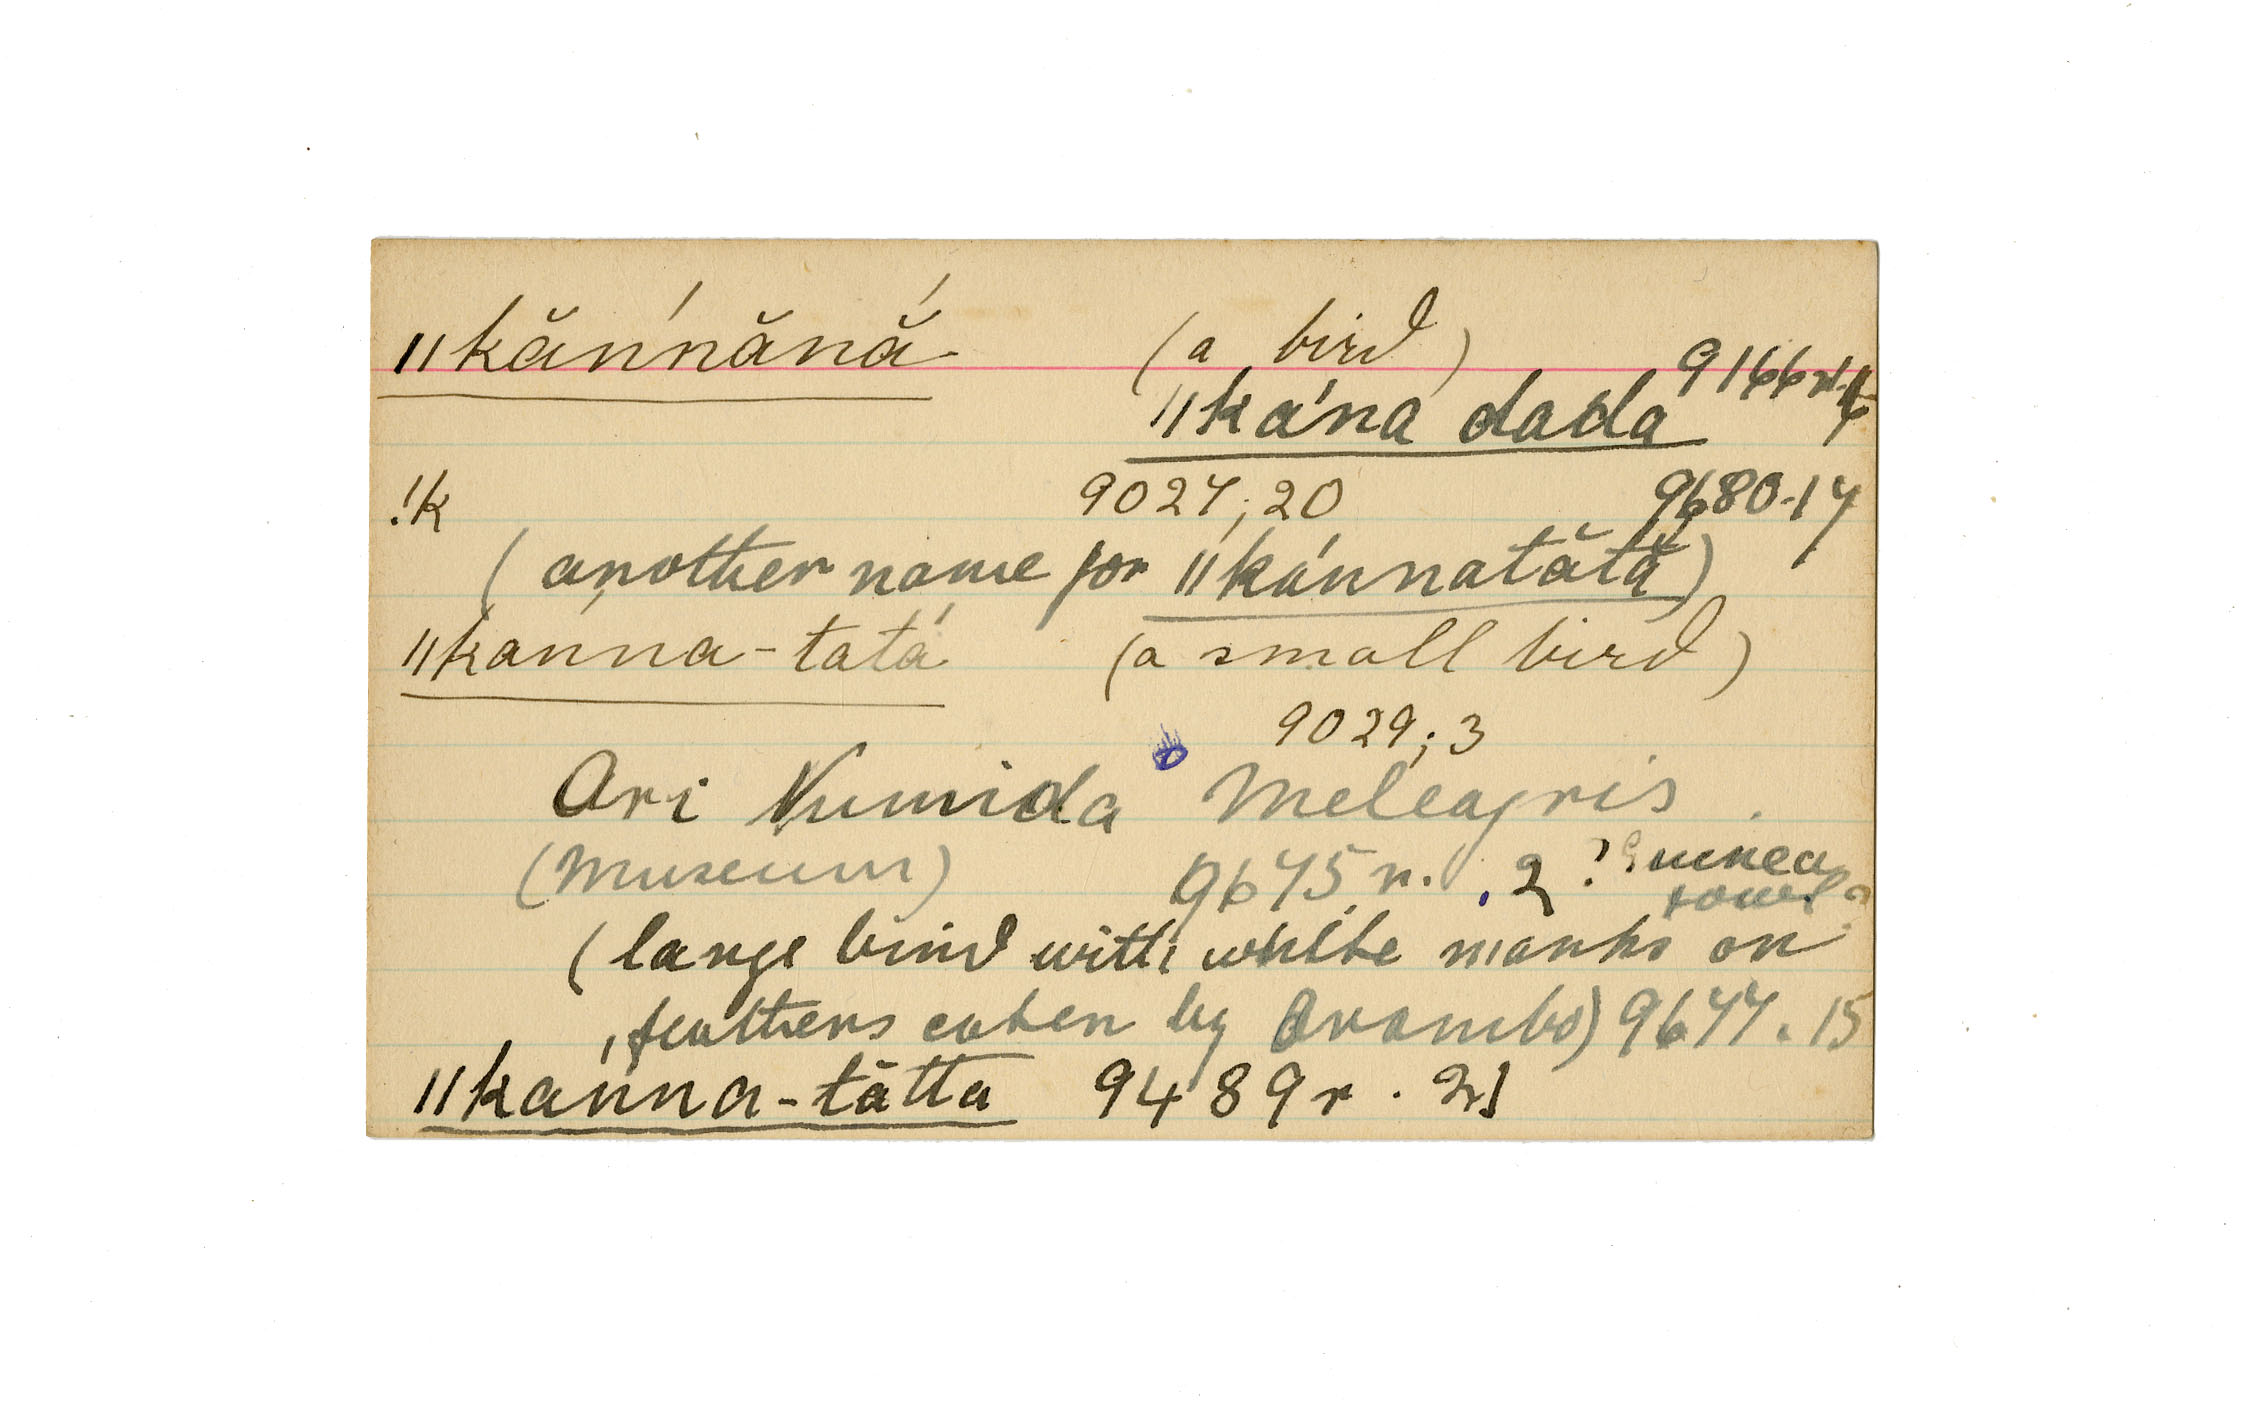 ǁkăń'năná (a bird)
ǁka'na dada 9166 r.
!k 9027; 20 9680-17
(another name for ǁkánnatătă)
ǁkanna-tatá (a small bird)
9029; 3
Ovi Numida Meleagris.
(Museum) 9675 r. . 2 ? Guinea
fowl?
(large bird with white marks on
feathers eaten by Ovambo) 9677. 15
ǁkanna-tătta 9489 r. 21